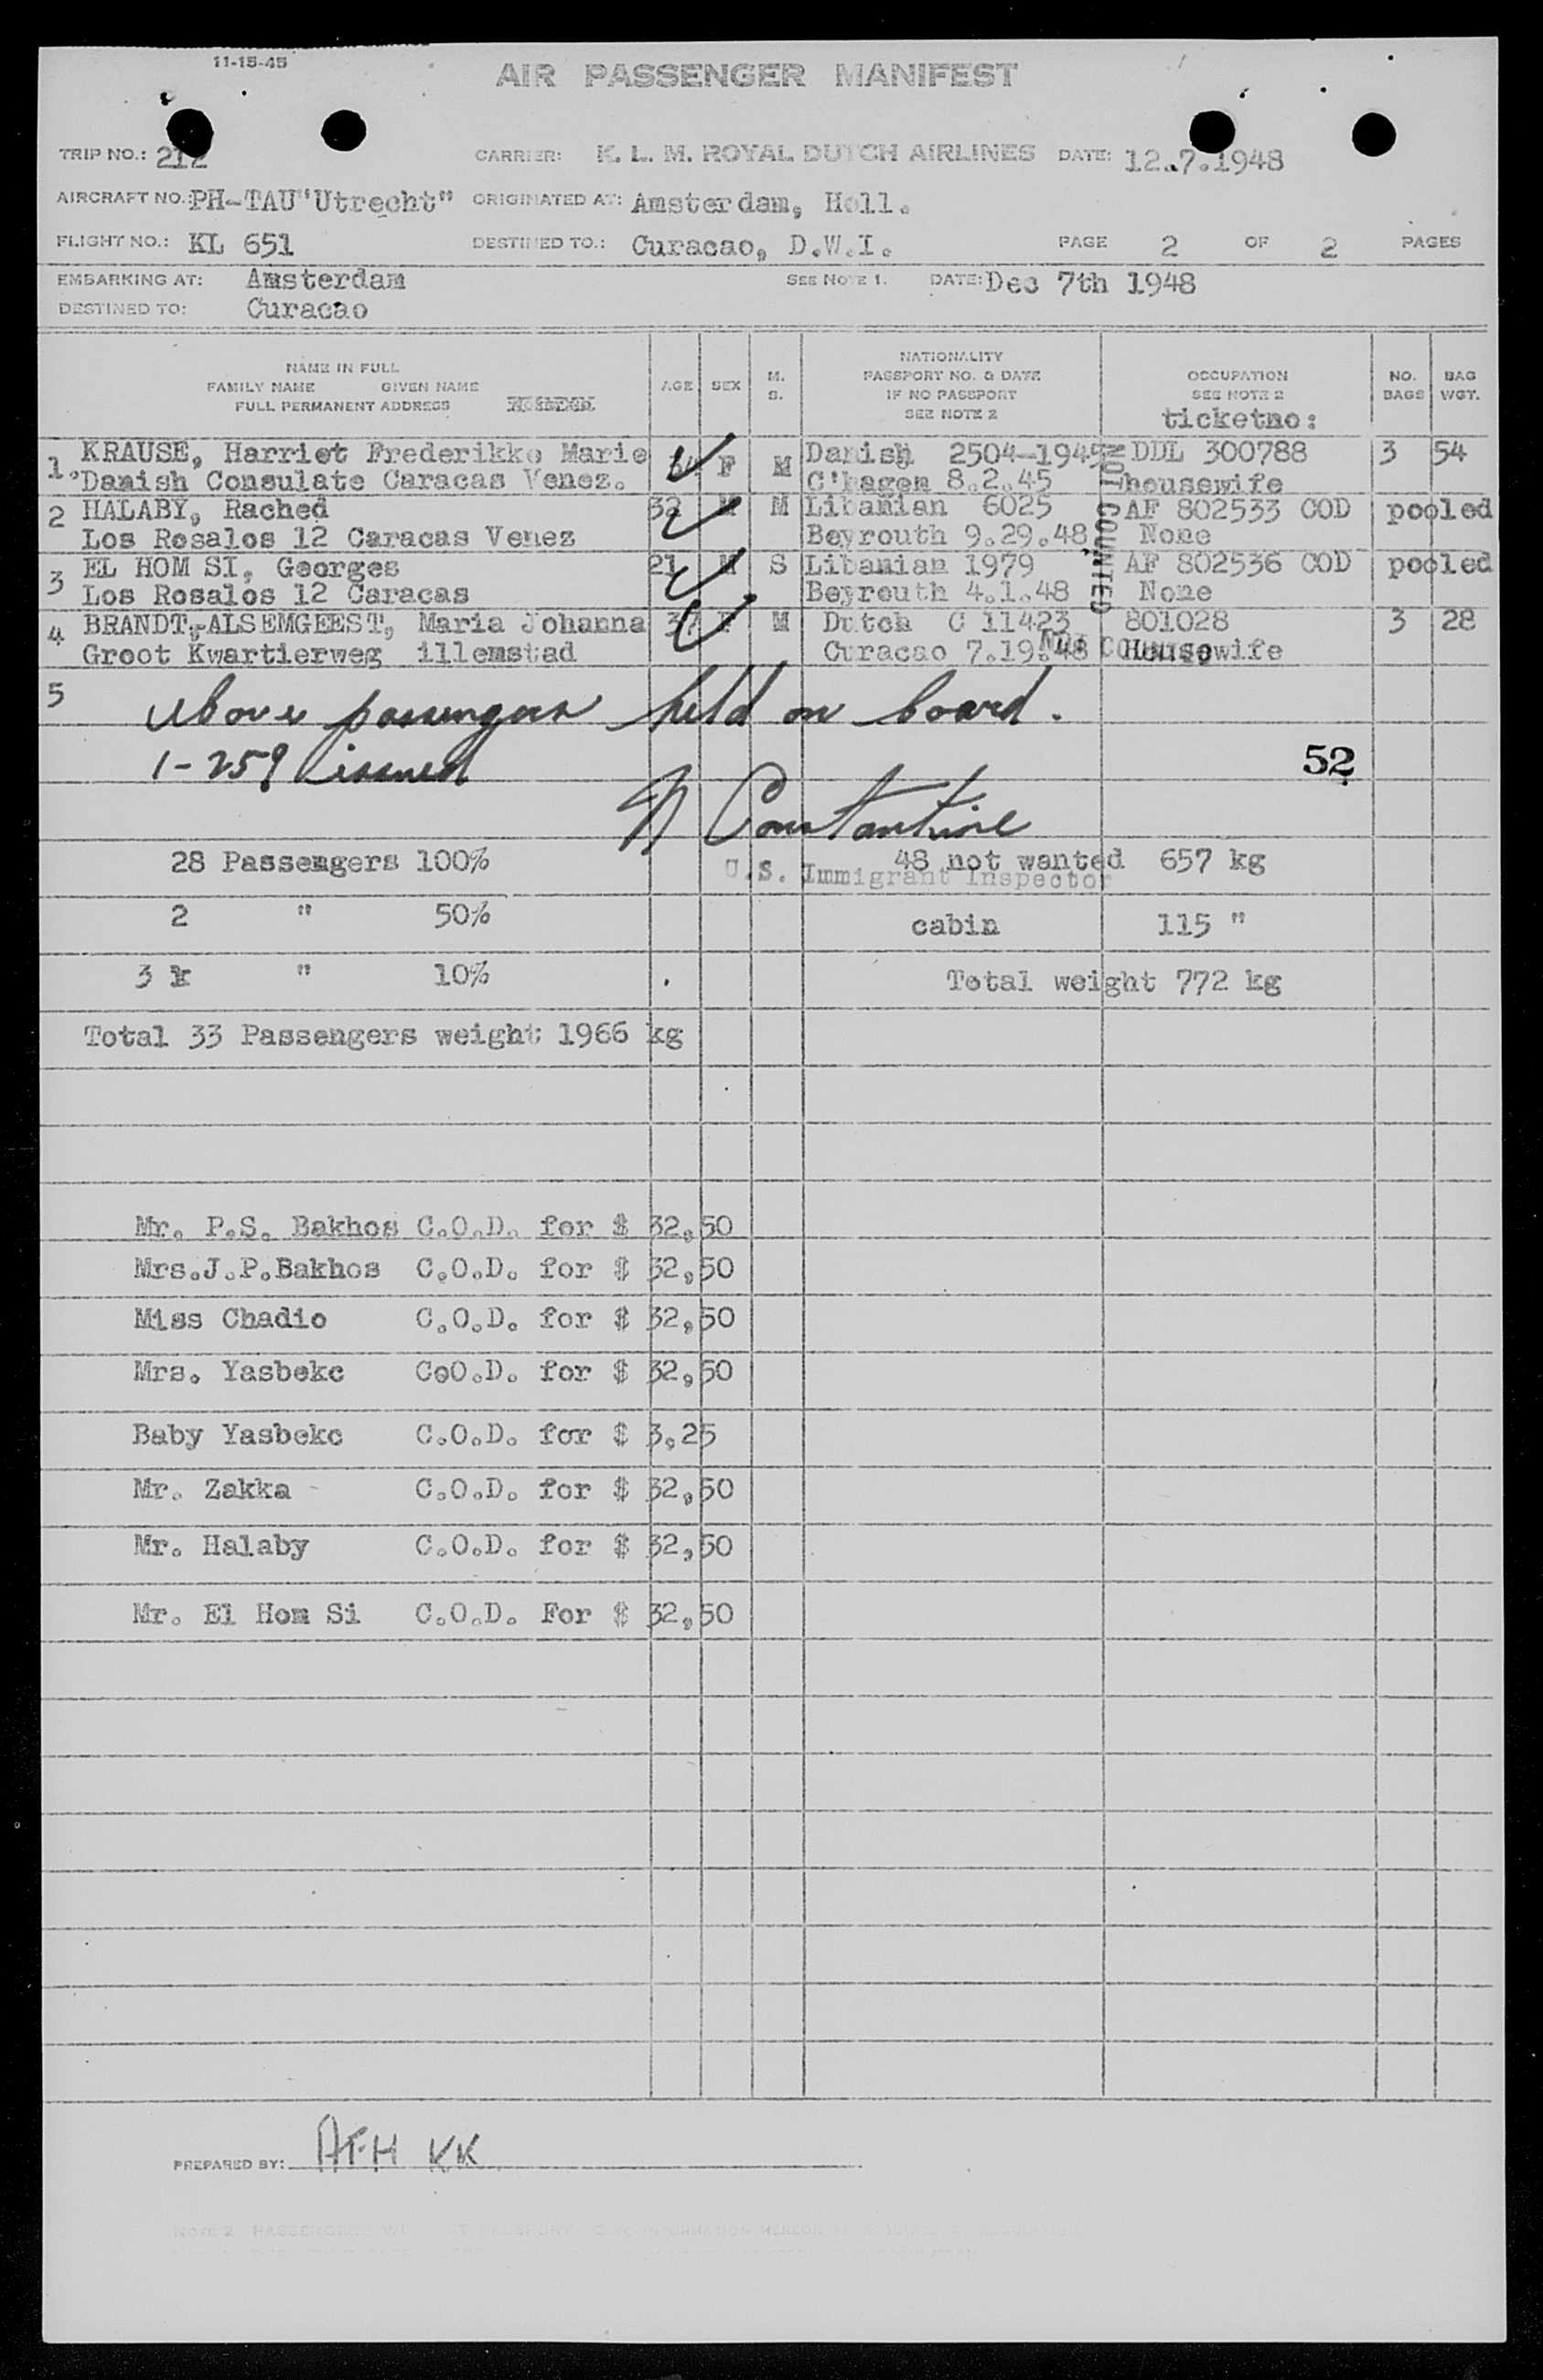 11-15-45
AIR PASSENGER MANIFEST
TRIP NO.: 212 CARRIER: K. L. M. ROYAL DUTCH AIRLINES DATE: 12.7.1948
AIRCRAFT NO.: PH-TAU "Utrecht" ORIGINATED AT: Amsterdam, Holl.
FLIGHT NO.: KL 651 DESTINED TO.: Curacao, D.W.I. PAGE 2 OF 2 PAGES
EMBARKING AT: Amsterdam SEE NOTE 1. DATE: Dec 7th 1948
DESTINED TO: Curacao
NAME IN FULL
FAMILY NAME GIVEN NAME
FULL PERMANENT ADDRESS
AGE SEX M. S.
NATIONALITY
PASSPORT NO. & DATE
IF NO PASSPORT
SEE NOTE 2
OCCUPATION
SEE NOTE 2
ticketno:
NO. BAGS
BAG WGT.
1. KRAUSE, Harriet Frederikke Marie F M Danish 2504-1945 DDL 300788 3 54
Danish Consulate Caracas Venez. C'hagen 8.2.45 housewife
2 HALABY, Rached 32 M M Libanian 6025 AF 802533 COD pooled
Los Rosalos 12 Caracas Venez Beyrouth 9.29.48 None
3 EL HOM SI, Georges 21 M S Libanian 1979 AF 802536 COD pooled
Los Rosalos 12 Caracas Beyrouth 4.1.48 None
NOT COUNTED
4 BRANDT-ALSEMGEEST, Maria Johanna 37 F M Dutch C 11423 801028 3 28
Groot Kwartierweg illemstad Curacao 7.19.48 Housewife
NOT COUNTED
5
Above passengers held on board.
1-259 issued
52
N Constantine
28 Passengers 100% 48 not wanted 657 kg
U.S. Immigrant Inspector
2 " 50% cabin 115 "
3 " 10% Total weight 772 kg
Total 33 Passengers weight 1966 kg
Mr. P.S. Bakhos C.O.D. for $ 32,50
Mrs.J.P.Bakhos C.O.D. for $ 32,50
Miss Chadio C.O.D. for $ 32,50
Mrs. Yasbekc CoO.D. for $ 32,50
Baby Yasbekc C.O.D. for $ 3,25
Mr. Zakka C.O.D. for $ 32,50
Mr. Halaby C.O.D. for $ 32,50
Mr. El Hom Si C.O.D. For $ 32,50
PREPARED BY: AFH KK